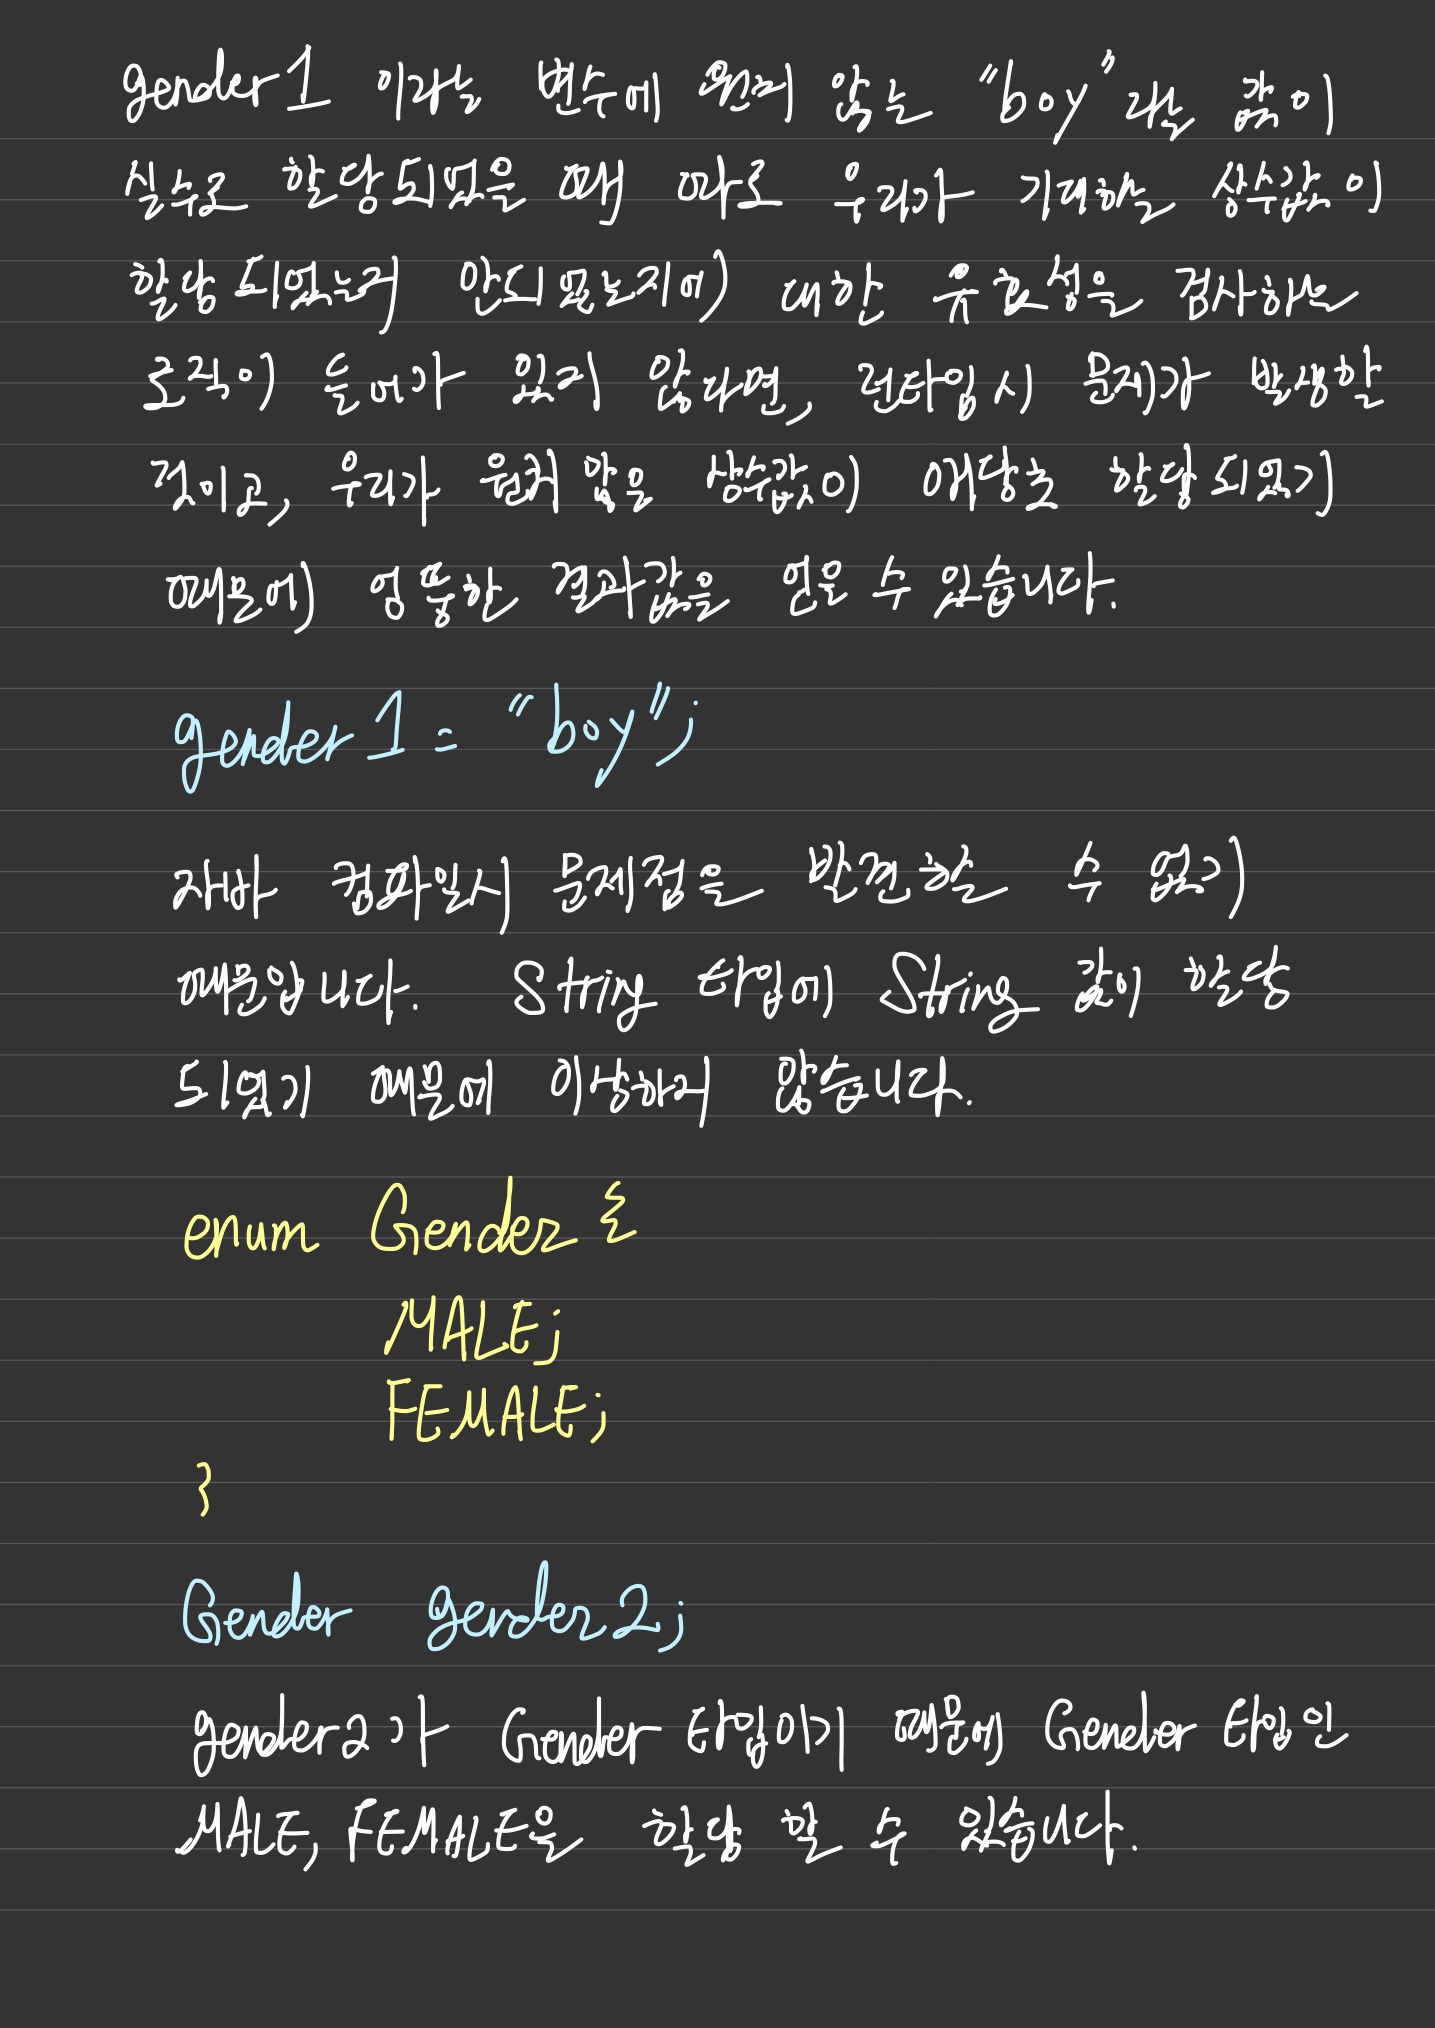 gender1 이라는 변수에 원치 않는 "boy"라는 값이
실수로 할당되었을 때 따로 우리가 기대하는 상수값이
할당 되었는지 안되었는지에 대한 유효성을 검사하는
로직이 들어가 있지 않다면, 런타임시 문제가 발생할
것이고, 우리가 원치 않은 상수값이 애당초 할당되었기
때문에 엉뚱한 결과값을 얻을 수 있습니다.
gender1 = "boy";
자바 컴파일시 문제점을 발견할 수 없기
때문입니다. String 타입에 String 값이 할당
되었기 때문에 이상하지 않습니다.
enum Gender {
MALE;
FEMALE;
}
Gender gender2;
gender2가 Gender 타입이기 때문에 Gender 타입인
MALE, FEMALE을 할당 할 수 있습니다.